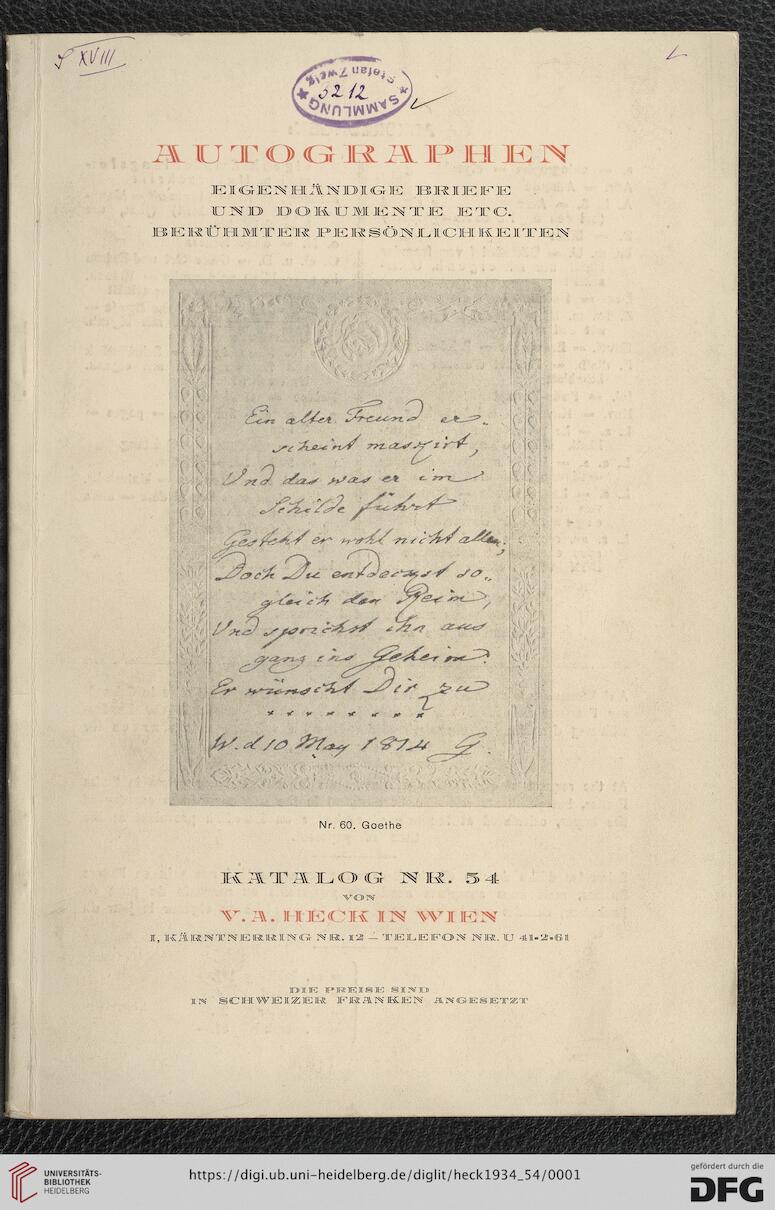 S XVIII
SAMMLUNG Stefan Zweig
5212
AUTOGRAPHEN
EIGENHÄNDIGE BRIEFE
UND DOKUMENTE ETC.
BERÜHMTER PERSÖNLICHKEITEN
Ein alter Freund er-
scheint maskirt,
Und das was er im
Schilde führt
Gesteht er wohl nicht allen;
Doch Du entdeckst so-
gleich den Reim,
Und sprichst ihn aus
ganz ins Geheim.
Er wünscht Dir zu
* * * * * * * *
W. d 10 May 1814 G.
Nr. 60. Goethe
KATALOG NR. 54
VON
V. A. HECK IN WIEN
I, KÄRNTNERRING NR. 12 — TELEFON NR. U 41-2-61
DIE PREISE SIND
IN SCHWEIZER FRANKEN ANGESETZT
UNIVERSITÄTS-
BIBLIOTHEK
HEIDELBERG
https://digi.ub.uni-heidelberg.de/diglit/heck1934_54/0001
gefördert durch die
DFG